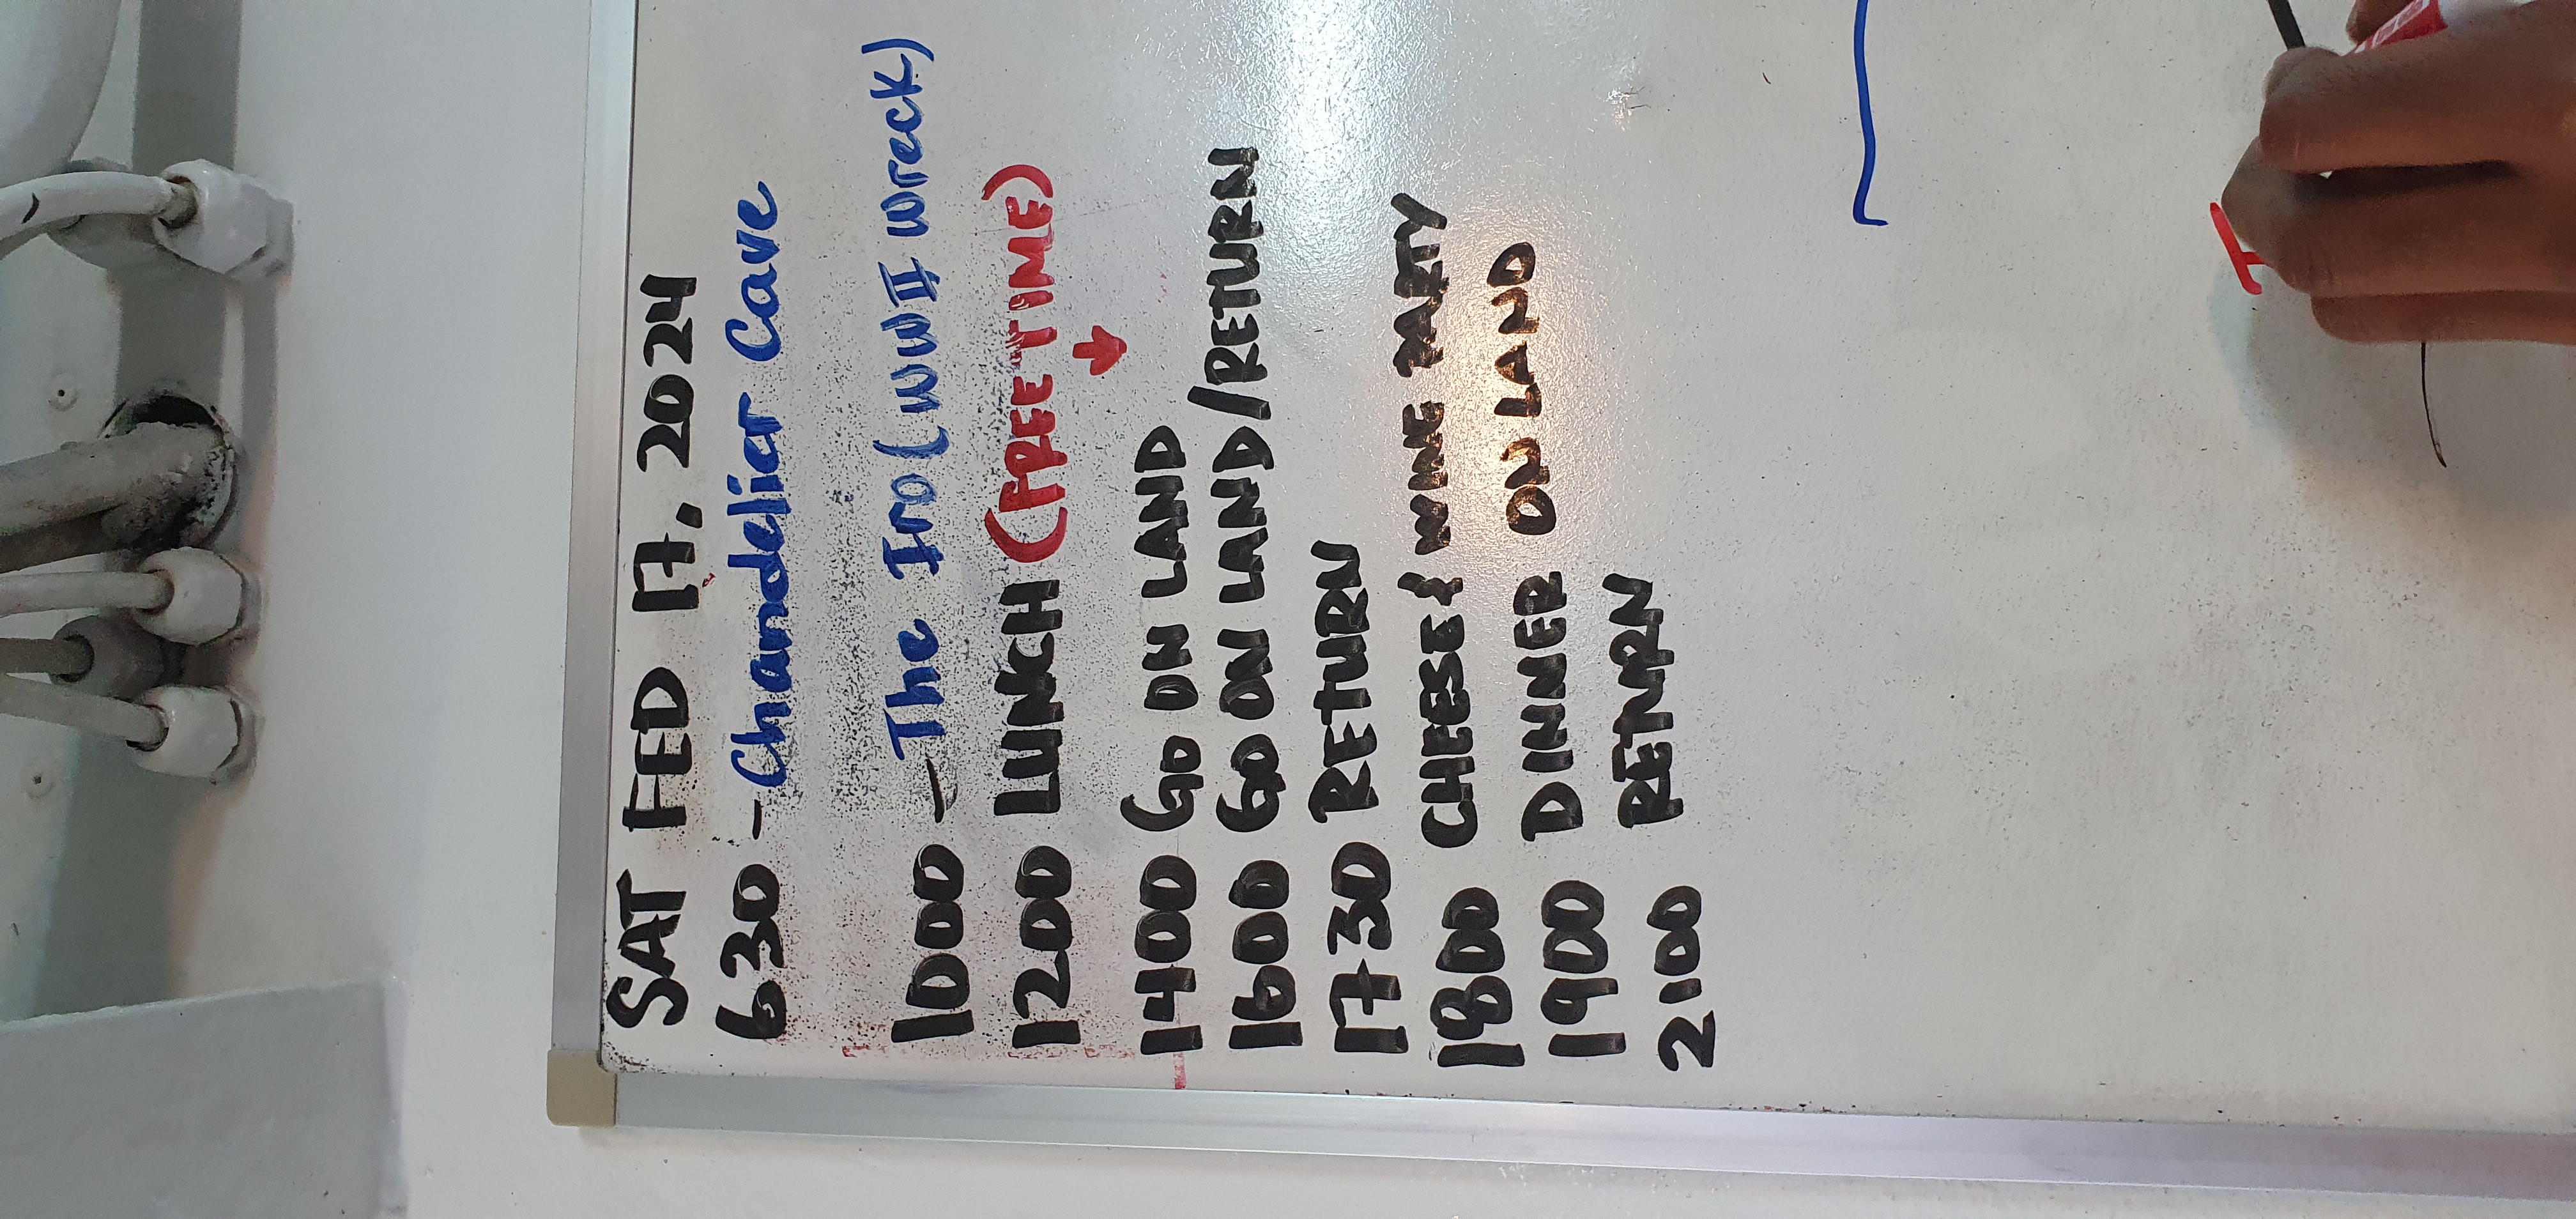 SAT FED 17, 2024
630 - Chandelier Cave
1000 - The Iro (WWII Wreck)
1200 LUNCH (FREE TIME)
1400 GO ON LAND
1600 GO ON LAND/RETURN
1730 RETURN
1800 CHEESE & WINE PARTY
1900 DINNER ON LAND
2100 RETURN